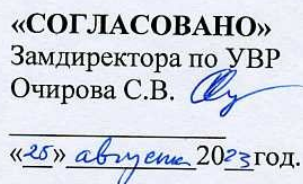 «СОГЛАСОВАНО»
Замдиректора по УВР
Очирова С.В.
«25» августа 2023год.